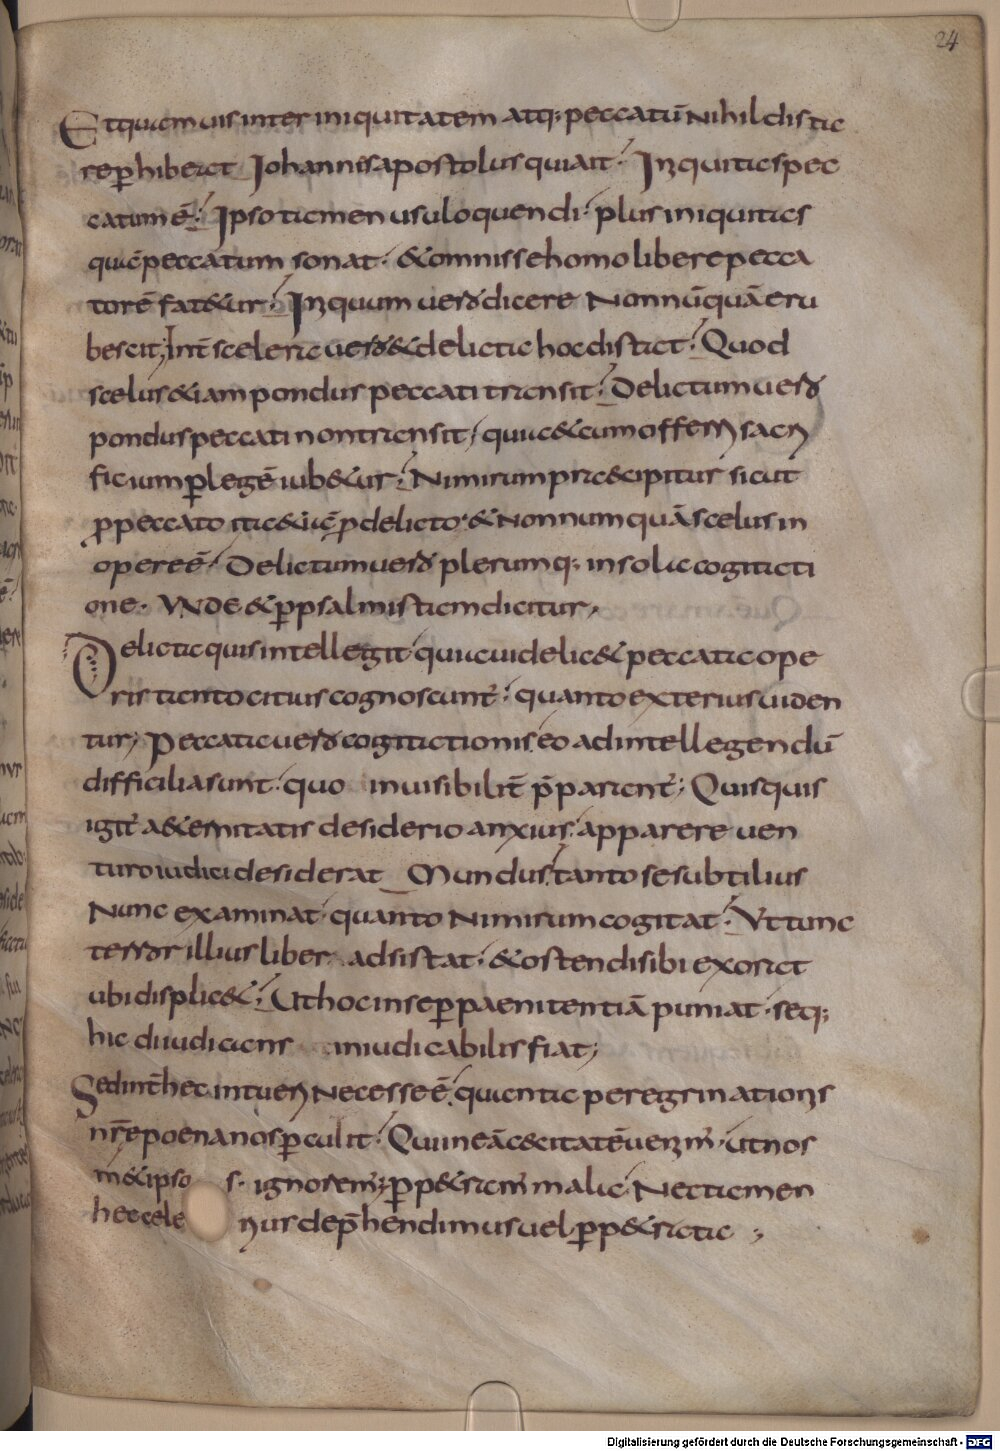 24
Et quamuis inter iniquitatem atq; peccatū nihil dista
re phibeat Iohannis apostolus qui ait· Iniquitas pec
catum ē· Ipso tamen usu loquendi· plus iniquitas
quā peccatum sonat· & omnis se homo libere pecca
torē fat&ur· Iniquum uero dicere nonnūquā eru
bescit; Int̄ scelera uero & delicta hoc distat· Quod
scelus &iam pondus peccati transit· Delictum uero
pondus peccati non transit, quia & cum offerri sacri
ficium p legē iub&ur· Nimirum praecipitur sicut
p peccato ita &iā p delicto· & non numquā scelus in
opere ē· Delictum uero plerumq; in sola cogitati
one· Unde & p psalmistam dicitur,
Delicta quis intellegit· quia uidelic& peccata ope
ris tanto citius cognoscunt̄· quanto exterius uiden
tur, Peccata uero cogitationis eo ad intellegendū
difficilia sunt· quo inuisibilit̄ p̄parant̄; Quisquis
igit̄ a&ernitatis desiderio anxius· apparere uen
turo iudici desiderat Mundus tanto se subtilius
nunc examinat· quanto nimirum cogitat· Ut tunc
terrori illius liber adsistat· & ostendi sibi exorat
ubi displic&· Ut hoc in se p paenitentiā puniat· seq;
hic diiudicans iniudicabilis fiat;
Sed int̄ hec intueri necesse ē· quanta peregrinationis
nr̄e poena nos pculit· Qui in eā c&citatē uenim̄· ut nos
m&ipso s· ignorem̄; p p&ram̄ mala· Nec tamen
hec cele rius dep̄hendimus uel p p&rata ;
Digitalisierung gefördert durch die Deutsche Forschungsgemeinschaft - DFG